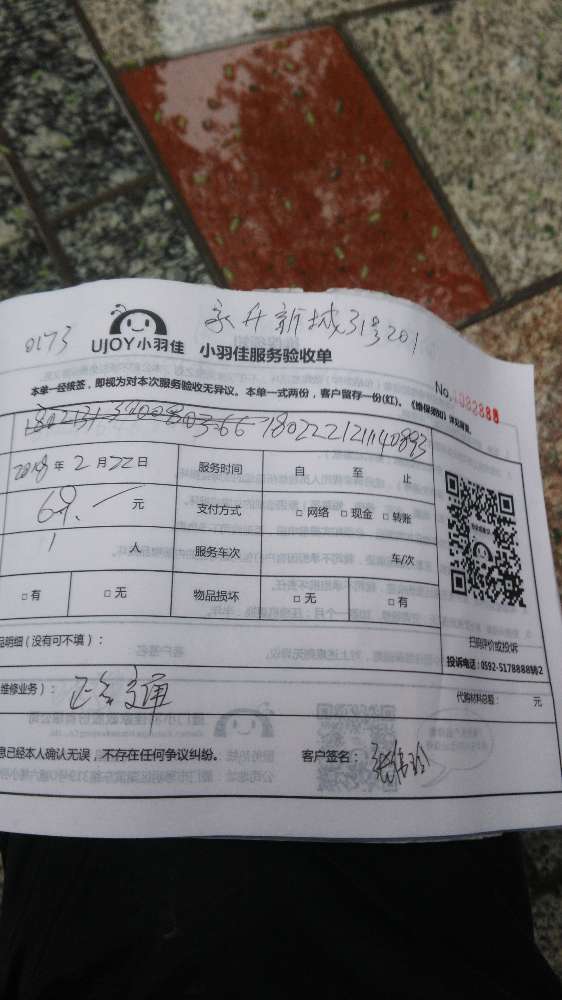 永升新城31号201
0173
UJOY小羽佳 小羽佳服务验收单
No.1082888
本单一经核签,即视为对本次服务验收无异议。本单一式两份,客户留存一份(红)。《维保须知》详见背面。
180222121140893
2018年2月22日 服务时间 自 至 止
68.元 支付方式 □网络 □现金 □转账
1人 服务车次 车/次
□有 □无 物品损坏 □无 □有
扫码评价或投诉
品明细(没有可不填):
投诉电话:0592-5178888转2
维修业务): 正常 通
代购材料总额: 元
息已经本人确认无误,不存在任何争议纠纷。 客户签名: